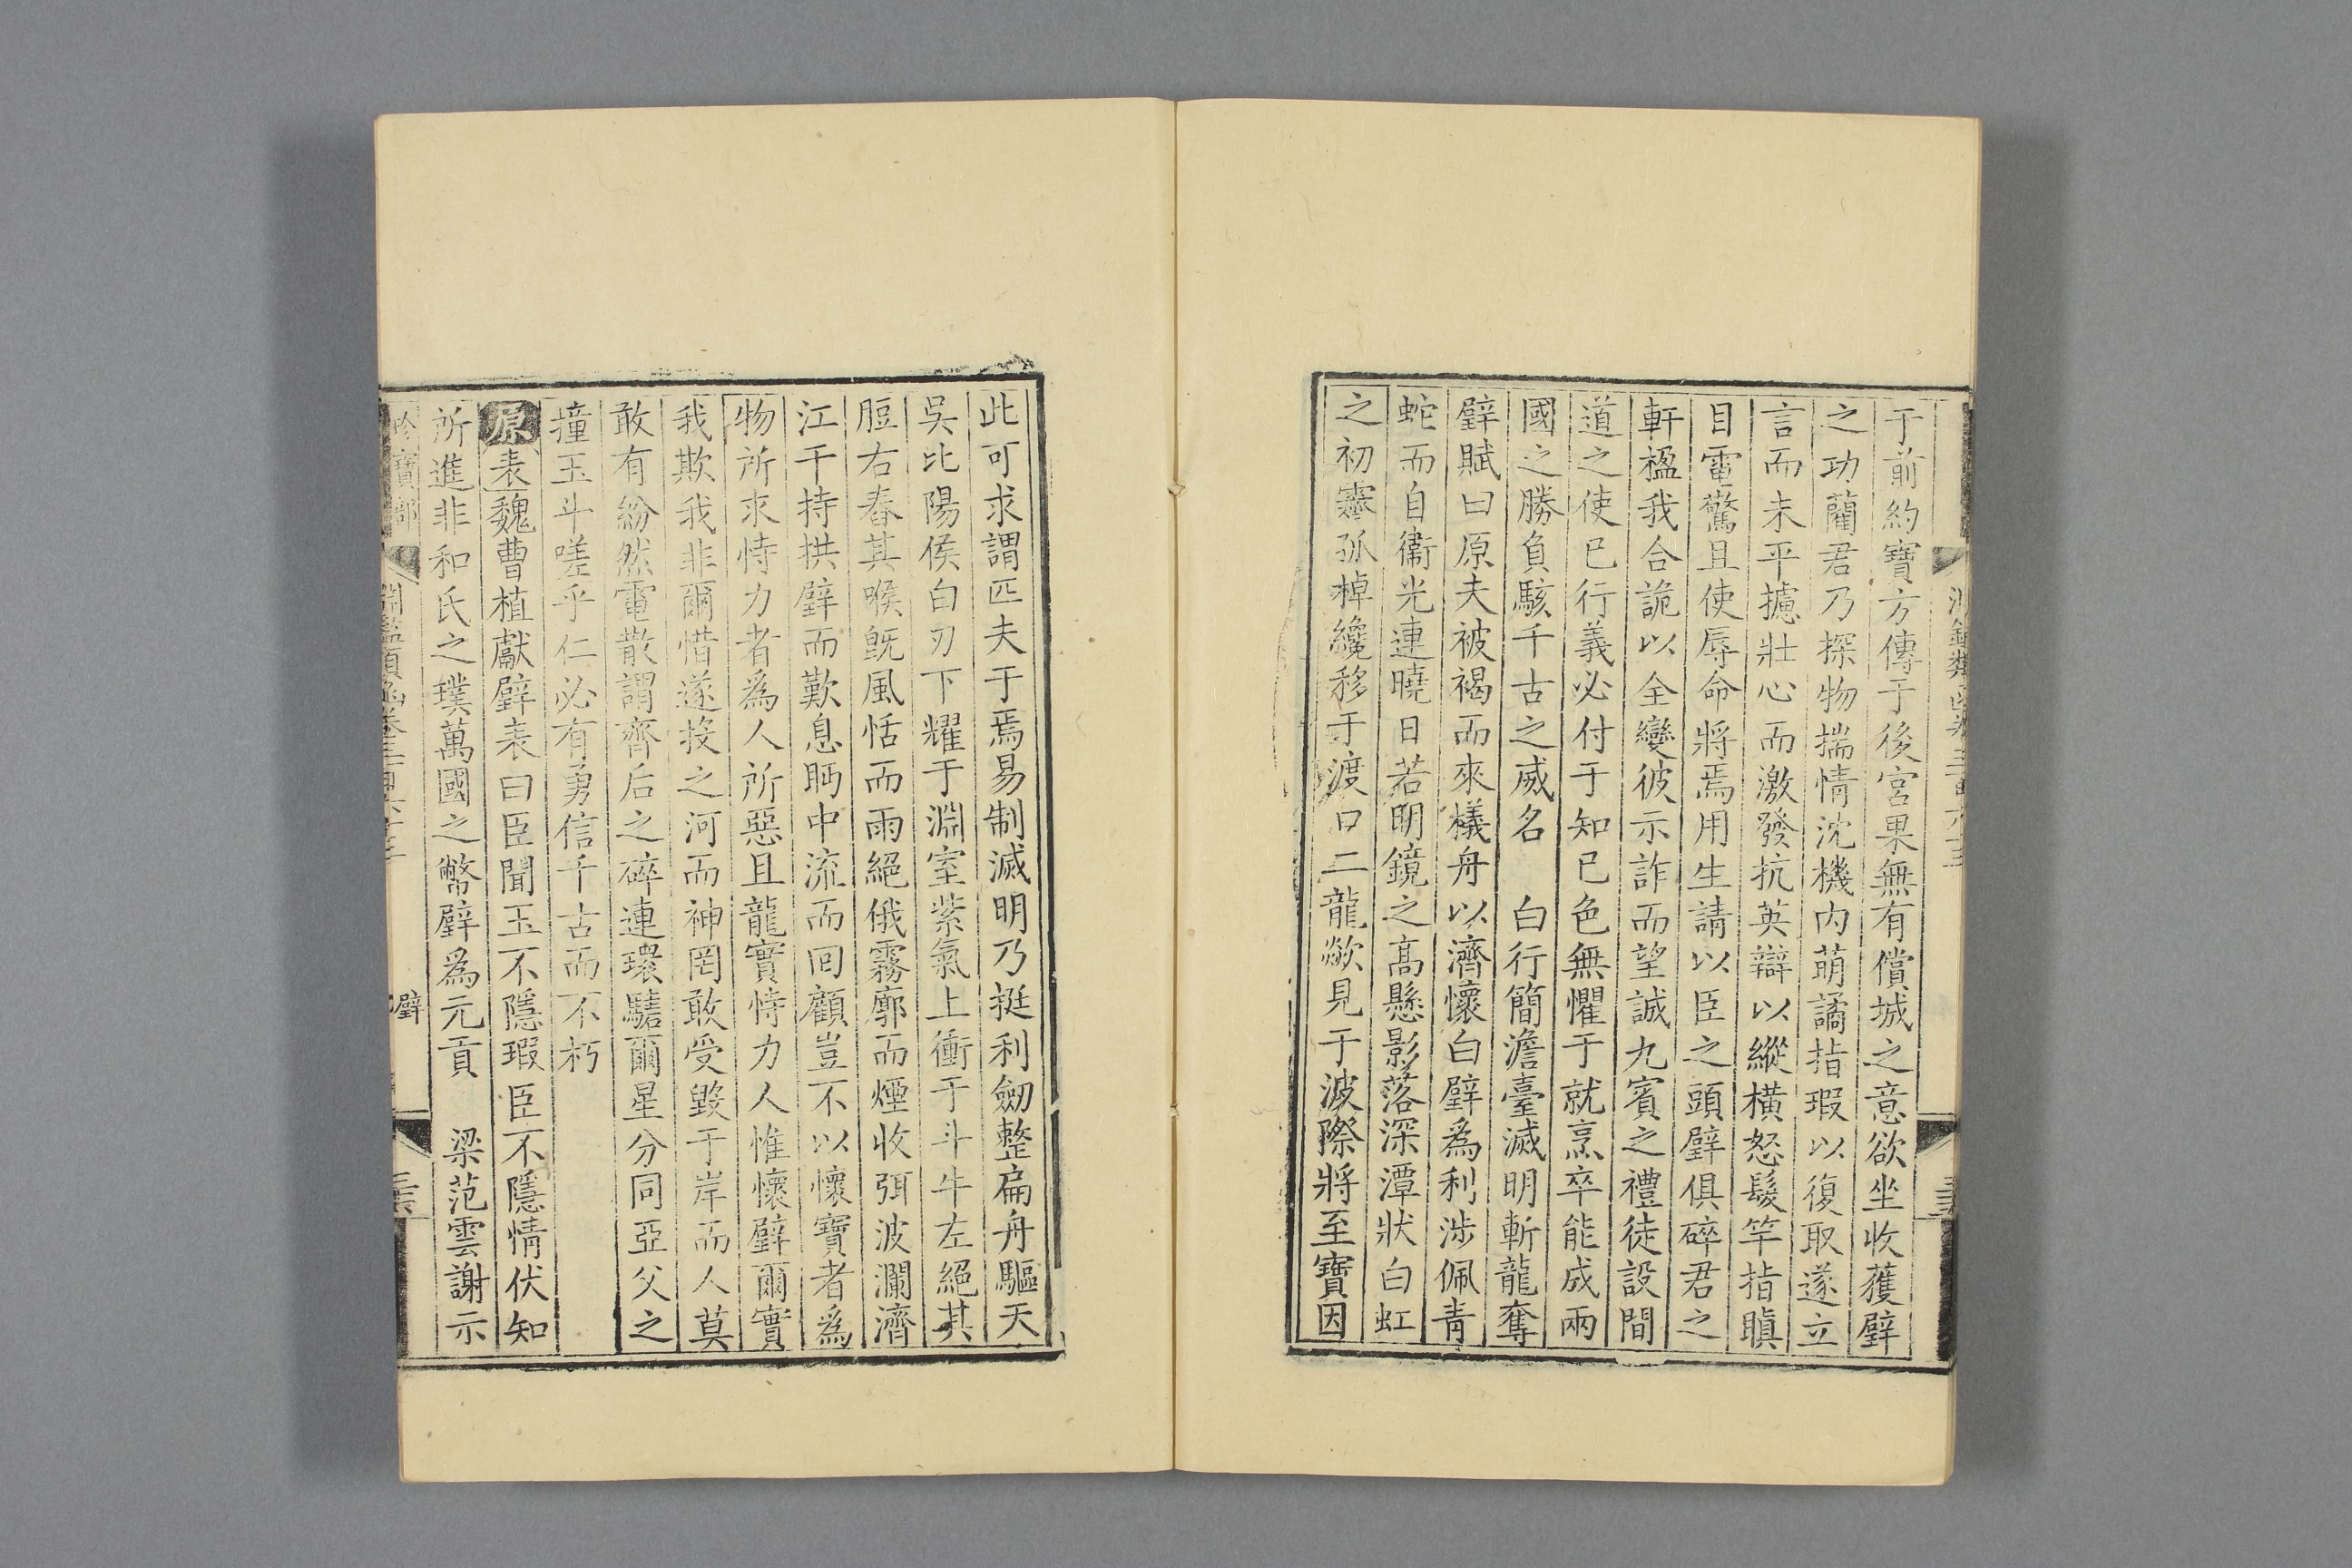 于前約寶方傳于後宮果無有償城之意欲坐收獲璧
之功藺君乃探物揣情沈機内萌譎指瑕以復取遂立
言而未平攄壯心而激發抗英辯以縱橫怒髮竿指瞋
目電驚且使辱命將焉用生請以臣之頭璧俱碎君之
軒楹我合詭以全變彼示詐而望誠九賓之禮徒設間
道之使已行義必付于知己色無懼于就烹卒能成兩
國之勝負駭千古之威名　白行簡澹臺滅明斬龍奪
璧賦曰原夫被褐而來檥舟以濟懷白璧爲利涉佩青
蛇而自衞光連曉日若明鏡之高懸影落深潭狀白虹
之初霽孤棹纔移于渡口二龍歘見于波際將至寶因
此可求謂匹夫于焉易制滅明乃挺利劒整扁舟驅天
吳比陽侯白刃下耀于淵室紫氣上衝于斗牛左絕其
脰右舂其喉旣風恬而雨絕俄霧廓而煙收弭波瀾濟
江干持拱璧而歎息眄中流而回顧豈不以懷寶者爲
物所求恃力者爲人所惡且龍實恃力人惟懷璧爾實
我欺我非爾惜遂投之河而神罔敢受毀于岸而人莫
敢有紛然電散謂齊后之碎連環騞爾星分同亞父之
撞玉斗嗟乎仁必有勇信千古而不朽
原表魏曹植獻璧表曰臣聞玉不隱瑕臣不隱情伏知
所進非和氏之璞萬國之幣璧爲元貢　梁范雲謝示
珍寶部　淵鑑類函卷三百六十三　璧